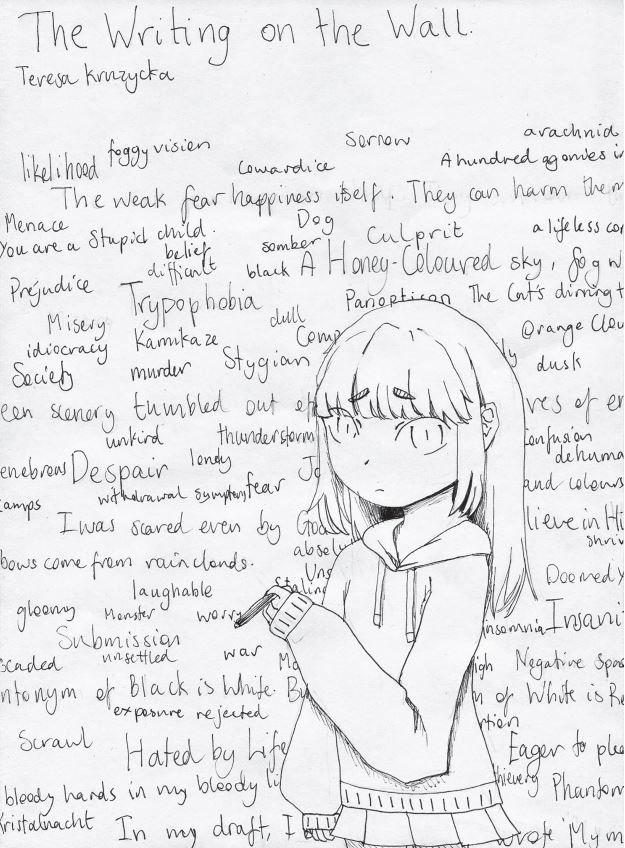 The Writing on the Wall.
Teresa Kruzycka
arachnid
likelihood foggy vision Sorrow
cowardice A hundred agonies in
The weak fear happiness itself. They can harm them
Menace Dog
You are a Stupid child. Culprit a lifeless cor
belief somber
difficult black A Honey-Coloured sky, fog w
Prejudice Trypophobia Panopticon The Cat's dinning t
dull
Misery Kamikaze Comp Orange Clou
idiocracy Stygian ly dusk
Society murder
een scenery tumbled out of ves of en
unkind thunderstorm Confusion
lonely dehuma
enebrous Despair fear Jo and colours
camps withdrawal symptoms
I was scared even by God lieve in Hi
absolu shriv
bows come from rainclouds. Uns
laughable Doomed
gloomy Monster worry
Submission insomnia Insani
unsettled war
scaded Mo igh Negative spac
ntonym of Black is White. Bu n of White is Re
exposure rejected rtion
Scrawl Hated by Life Eager to plea
hievery
bloody hands in my bloody li Phantom
Kristalnacht In my draft, I wrote 'My m